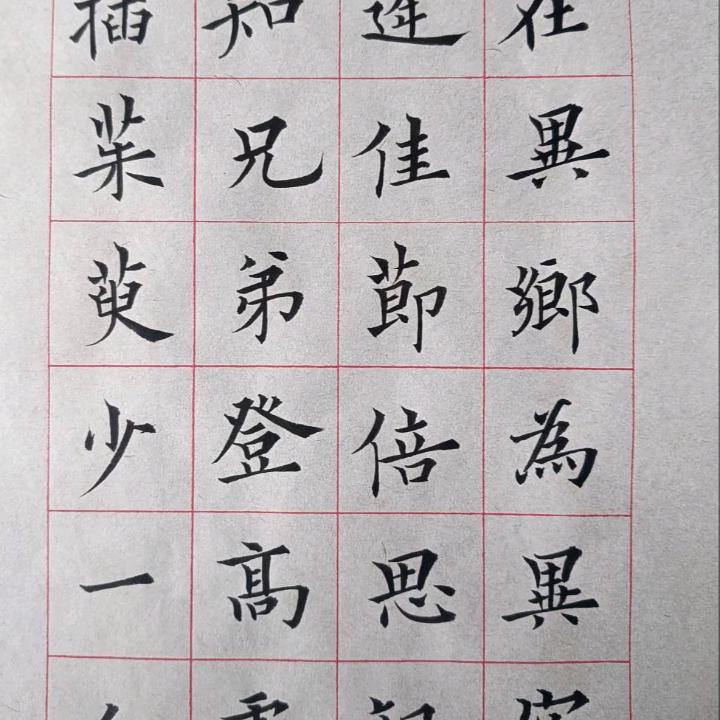 在異鄉為異
逢佳節倍思
知兄弟登高
插茱萸少一